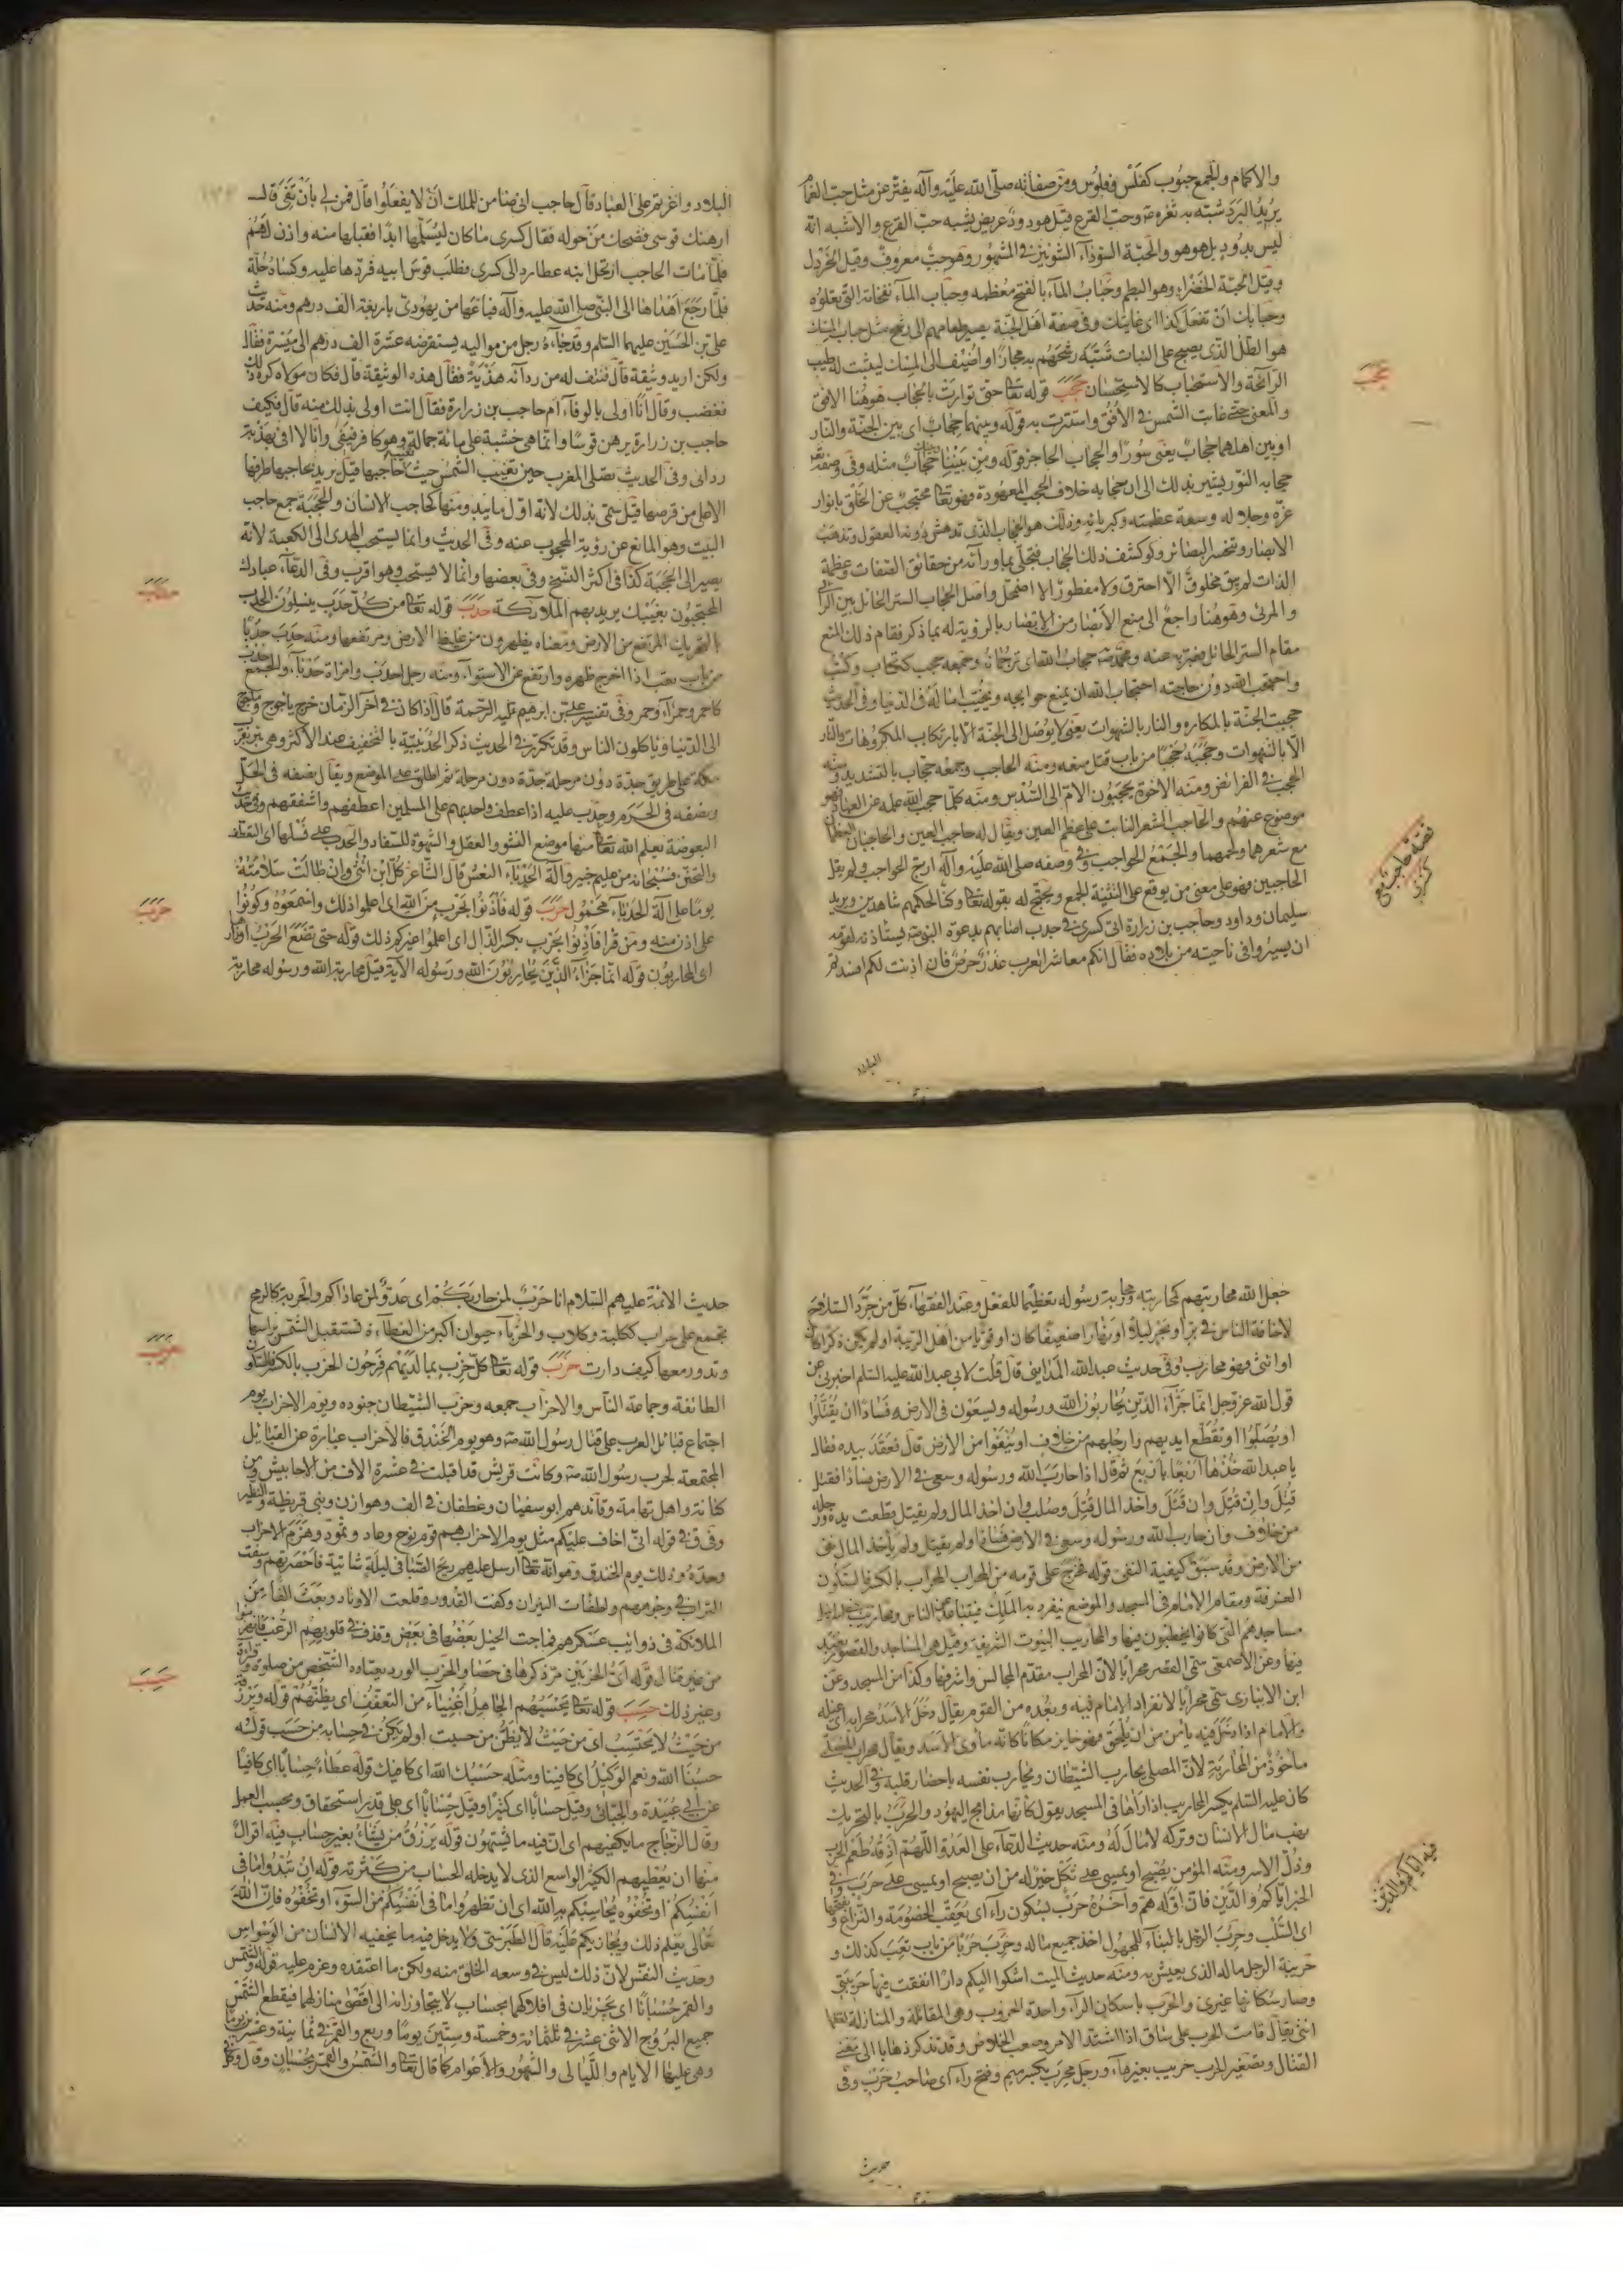 والاكمام والجمع حبوب كفلس وفلوس ومن صفاته صلى الله عليه وآله يفتر عن مثل حب الغمام
يريد البرد شبه به ثغره وحب القرع قيل هو دود عريض يشبه حب القرع والاشبه انه
ليس بدود بل هو هو والحبة السوداء الشونيز في المشهور وهو حب معروف وقيل الخردل
وقيل الحبة الخضراء وهو البطم وحباب الماء بالفتح معظمه وحباب الماء نفخاته التي تعلوه
وحبابك ان تفعل كذا اى غايتك وفى صفة اهل الجنة يصير طعامهم الى رشح مثل حباب المسك
هو الطل الذى يصبح على النبات شبه رشحهم به مجازا او اضيف الى المسك ليثبت له طيب
الرائحة والاستحباب كالاستحسان حجب قوله تعا حتى توارت بالحجاب هو هنا الافق
والمعنى حتى غابت الشمس في الافق واستترت به قوله وبينهما حجاب اى بين الجنة والنار
او بين اهلهما حجاب يعنى سورا والحجاب الحاجز قوله ومن بيننا وبينك حجاب مثله وفى وصفه تعا
حجابه النور يشير بذلك الى ان حجابه خلاف الحجب المعهودة فهو تعا محتجب عن الخلق بانوار
عزه وجلاله وسعة عظمته وكبريائه وذلك هو الحجاب الذى تدهش دونه العقول وتذهب
الابصار وتتحسر البصائر ولو كشف ذلك الحجاب فتجلى بما وراءه من حقائق الصفات وعظمة
الذات لم يبق مخلوق الا احترق ولا مفطور الا اضمحل واصل الحجاب الستر الحائل بين الرائى
والمرئى وهو هنا راجع الى منع الابصار من الابصار بالرؤية له بما ذكر فقام ذلك المنع
مقام الستر الحائل فعبر به عنه ومحمد ص حجاب الله اى ترجمانه وجمعه حجب ككتاب وكتب
واحتجب الله دون حاجته احتجاب الله ان يمنع حوايجه ويخيب اماله فى الدنيا وفى الحديث
حجبت الجنة بالمكاره والنار بالشهوات يعنى لا يوصل الى الجنة الا بارتكاب المكروهات والنار
الا بالشهوات وحجبه حجبا من باب قتل منعه ومنه الحاجب وجمعه حجاب بالتشديد ومنه
الحجب فى الفرائض ومنه الاخوة يحجبون الام الى السدس ومنه كلما حجب الله علمه عن العباد فهو
موضوع عنهم والحاجب الشعر النابت على عظم العين ويقال له حاجب العين والحاجبان العظمان
مع شعرهما ولحمهما والجمع الحواجب وفى وصفه صلى الله عليه وآله ازج الحواجب ولم يقل
الحاجبين فهو على معنى من يوقع على التثنية الجمع ويحتج له بقوله تعا وكنا لحكمهم شاهدين ويريد
سليمان وداود وحاجب بن زرارة اتى كسرى فى جدب اصابهم بدعوة النبى ص يستاذنه لقومه
ان يسيروا فى ناحيته من بلاده فقال انكم معاشر العرب غدر حرص فان اذنت لكم افسدتم
حجب
قصة حاجب مع كسرى
البلاد
البلاد واغرتم على العباد قال حاجب انى ضامن للملك ان لا يفعلوا قال فمن لى بان تفى قال
ارهنك قوسى فضحك من حوله فقال كسرى ما كان ليسلمها ابدا فقبلها منه واذن لهم
فلما مات الحاجب ارتحل ابنه عطارد الى كسرى فطلب قوس ابيه فردها عليه وكساه حلة
فلما رجع اهداها الى النبى صلى الله عليه وآله فباعها من يهودى باربعة الف درهم ومنه حديث
على بن الحسين عليهما السلم وقد جاءه رجل من مواليه يستقرضه عشرة الف درهم الى ميسرة فقال
ولكن اريد وثيقة قال فنتف له من ردائه هدبة فقال هذه الوثيقة قال فكان مولاه كره ذلك
فغضب وقال انا اولى بالوفاء ام حاجب بن زرارة فقال انت اولى بذلك منه قال فكيف
حاجب بن زرارة يرهن قوسا وانما هى خشبة على مائة حمالة وهو كافر فيفى وانا لا افى بهدبة
ردائى وفى الحديث تصلى المغرب حين تغيب الشمس حيث تغيب حاجبها قيل يريد بحاجبها طرفها
الاعلى من قرصها قيل سمى بذلك لانه اول ما يبدو منها كحاجب الانسان والحجبة جمع حاجب
البيت وهو المانع عن رؤية المحجوب عنه وفى الحديث وانما يستحب الهدى الى الكعبة لانه
يصير الى الحجبة كذا فى اكثر النسخ وفى بعضها وانما لا يستحب وهو اقرب وفى الدعاء عبادك
المحتجبون بغيبك يريد بهم الملائكة حدب قوله تعا من كل حدب ينسلون الحدب
بالتحريك المرتفع من الارض ومعناه يظهرون من غليظ الارض ومرتفعها ومنه حدب حدبا
من باب تعب اذا اخرج ظهره وارتفع عن الاستواء ومنه رجل احدب وامراة حدباء والجمع حدب
كاحمر وحمراء وحمر وفى تفسير على بن ابرهيم عليه الرحمة قال اذا كان فى آخر الزمان خرج ياجوج وماجوج
الى الدنيا وياكلون الناس وقد تكرر فى الحديث ذكر الحديبية بالتخفيف عند الاكثر وهى بئر بقرب
مكة على طريق جدة دون مرحلة ثم اطلق على الموضع ويقال نصفه فى الحل
ونصفه فى الحرم وحدب عليه اذا عطف واحدبهم على المسلمين اعطفهم واشفقهم وفى حديث
البعوضة يعلم الله تعا منها موضع النشو والعقل والشهوة للسفاد والحدب على نسلها اى التعطف
والتحنن فسبحانه من عليم خبير وآلة الحدباء النعش قال الشاعر كل ابن انثى وان طالت سلامته
يوما على آلة الحدباء محمول حرب قوله فأذنوا بحرب من الله اى اعلموا ذلك واسمعوه وكونوا
على اذن منه ومن قرا فآذنوا بحرب بكسر الذال اى اعلموا غيركم ذلك قوله حتى تضع الحرب اوزارها
اى المحاربون قوله انما جزاء الذين يحاربون الله ورسوله الآية قيل محاربة الله ورسوله محاربة
حدب
حرب
جعل الله محاربتهم كمحاربته ومحاربة رسوله تعظيما للفعل وعند الفقهاء كل من جرد السلاح
لاخافة الناس فى بر او بحر ليلا او نهارا ضعيفا كان او قويا من اهل الريبة او لم يكن ذكرا كان
او انثى فهو محارب وفى حديث عبد الله المداينى قال قلت لابى عبد الله عليه السلم اخبرنى عن
قول الله عز وجل انما جزاء الذين يحاربون الله ورسوله ويسعون فى الارض فسادا ان يقتلوا
او يصلبوا او تقطع ايديهم وارجلهم من خلاف او ينفوا من الارض قال فعقد بيده فقال
يا عبد الله خذها اربعا باربع ثم قال اذا حارب الله ورسوله وسعى فى الارض فسادا فقتل
قتل وان قتل واخذ المال قتل وصلب وان اخذ المال ولم يقتل قطعت يده ورجله
من خلاف وان حارب الله ورسوله وسعى فى الارض فسادا ولم يقتل ولم يأخذ المال نفى
من الارض وقد سبق كيفية النفى قوله فخرج على قومه من المحراب المحراب بالكسر فالسكون
الغرفة ومقام الامام فى المسجد والموضع ينفرد به الملك فيتباعد عن الناس ومحاريب بنى اسرائيل
مساجدهم التى كانوا يخطبون فيها والمحاريب البيوت الشريفة وقيل هى المساجد والقصور يعبد
فيها وعن الاصمعى سمى القصر محرابا لان المحراب مقدم المجالس واشرفها وكذا من المسجد وعن
ابن الانبارى سمى محرابا لانفراد الامام فيه وبعده من القوم يقال دخل الاسد محرابه اى غيله
والامام اذا دخل فيه يأمن من ان يلحق فهو حايز مكانا كانه مأوى الاسد ويقال محراب المصلى
مأخوذ من المحاربة لان المصلى يحارب الشيطان ويحارب نفسه باحضار قلبه وفى الحديث
كان عليه السلم يكسر المحاريب اذا رآها فى المسجد يقول كانها مذابح اليهود والحرب بالتحريك
نهب مال الانسان وتركه لا مال له ومنه حديث الدعاء على العدو اللهم اذقه طعم الحرب
وذل الاسر ومنه المؤمن يصبح او يمسى على ثكل خير له من ان يصبح او يمسى على حرب وفى
الخبر اياكم والدين فان اوله هم وآخره حرب بسكون راء اى يعقب الخصومة والنزاع وبفتحها
اى السلب وحرب الرجل بالبناء للمجهول اخذ جميع ماله وحرب حربا من باب تعب كذلك و
حريبة الرجل ماله الذى يعيش به ومنه حديث الميت اشكوا اليكم دارا انفقت فيها حريبتى
وصار سكانها غيرى والحرب باسكان الراء واحدة الحروب وهى المقاتلة والمنازلة لفظها
انثى يقال قامت الحرب على ساق اذا اشتد الامر وصعب الخلاص وقد تذكر ذهابا الى معنى
القتال وتصغير الحرب حريب بغير هاء ورجل محرب بكسر ميم وفتح راء اى صاحب حرب وفى
فيه اياكم والدين
حديث
حديث الائمة عليهم السلام انا حرب لمن حاربكم اى عدو لمن عاداكم والحربة كالرمح
تجمع على حراب ككلبة وكلاب والحرباء حيوان اكبر من العظاءة تستقبل الشمس براسها
وتدور معها كيف دارت حزب قوله تعا كل حزب بما لديهم فرحون الحزب بالكسر فالسكون
الطائفة وجماعة الناس والاحزاب جمعه وحزب الشيطان جنوده ويوم الاحزاب يوم
اجتماع قبائل العرب على قتال رسول الله ص وهو يوم الخندق فالاحزاب عبارة عن القبائل
المجتمعة لحرب رسول الله ص وكانت قريش قد اقبلت فى عشرة الاف من الاحابيش ومن
كنانة واهل تهامة وقائدهم ابو سفيان وغطفان فى الف وهوازن وبنى قريظة والنضير
وفى قوله انى اخاف عليكم مثل يوم الاحزاب هم قوم نوح وعاد وثمود وهزم الاحزاب
وحده وذلك يوم الخندق وهو انه تعا ارسل عليهم ريح الصبا فى ليلة شاتية فاحصرتهم وسفت
التراب فى وجوههم واطفات النيران وكفت القدور وقلعت الاوتاد وبعث الفا من
الملائكة فى ذوائب عسكرهم فماجت الخيل بعضها فى بعض وقذف فى قلوبهم الرعب فانهزموا
من غير قتال قوله اى الحزبين مر ذكرها فى حصا والحزب الورد يعتاده الشخص من صلوة وقراءة
وغير ذلك حسب قوله تعا يحسبهم الجاهل اغنياء من التعفف اى يظنهم قوله ويرزقه
من حيث لا يحتسب اى من حيث لا يظن من حسبت او لم يكن فى حسابه من حسب قوله
حسبنا الله ونعم الوكيل اى كافينا ومثله حسبك الله اى كافيك قوله عطاء حسابا اى كافيا
عن ابى عبيدة والجبائى وقيل حسابا اى كثيرا وقيل حسابا اى على قدر استحقاق وبحسب العمل
وقال الزجاج ما يكفيهم اى ان فيه ما يشتهون قوله يرزق من يشاء بغير حساب فيه اقوال
منها ان يعطيهم الكثير الواسع الذى لا يدخله الحساب من كثرته قوله ان تبدوا ما فى
انفسكم او تخفوه يحاسبكم به الله اى ان تظهروا ما فى انفسكم من السوء او تخفوه فان الله
تعالى يعلم ذلك ويجازيكم عليه قال الطبرسى ولا يدخل فيه ما يخفيه الانسان من الوسواس
وحديث النفس لان ذلك ليس فى وسعه الخلو منه ولكن ما اعتقده وعزم عليه قوله والشمس
والقمر حسبانا اى يجريان فى افلاكهما بحساب لا يتجاوزانه الى اقصى منازلهما فيقطع الشمس
جميع البروج الاثنى عشر فى ثلثمائة وخمسة وستين يوما وربع والقمر فى ثمانية وعشرين يوما
وهى عليها الايام والليالى والشهور والاعوام كما قال تعا والشمس والقمر بحسبان وقال وكل
حزب
حسب